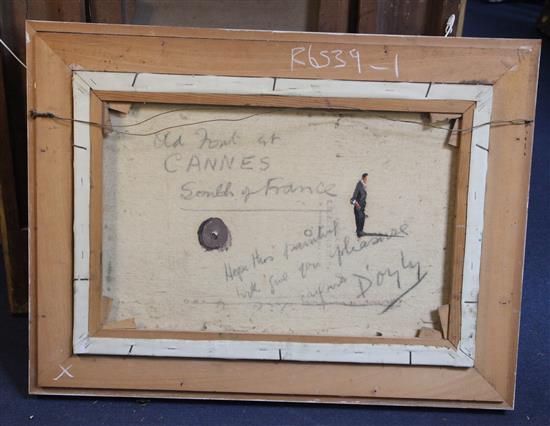 R6539-1
Old Port at
CANNES
South of France
Hope this painting
will give you pleasure
D'oyly
X